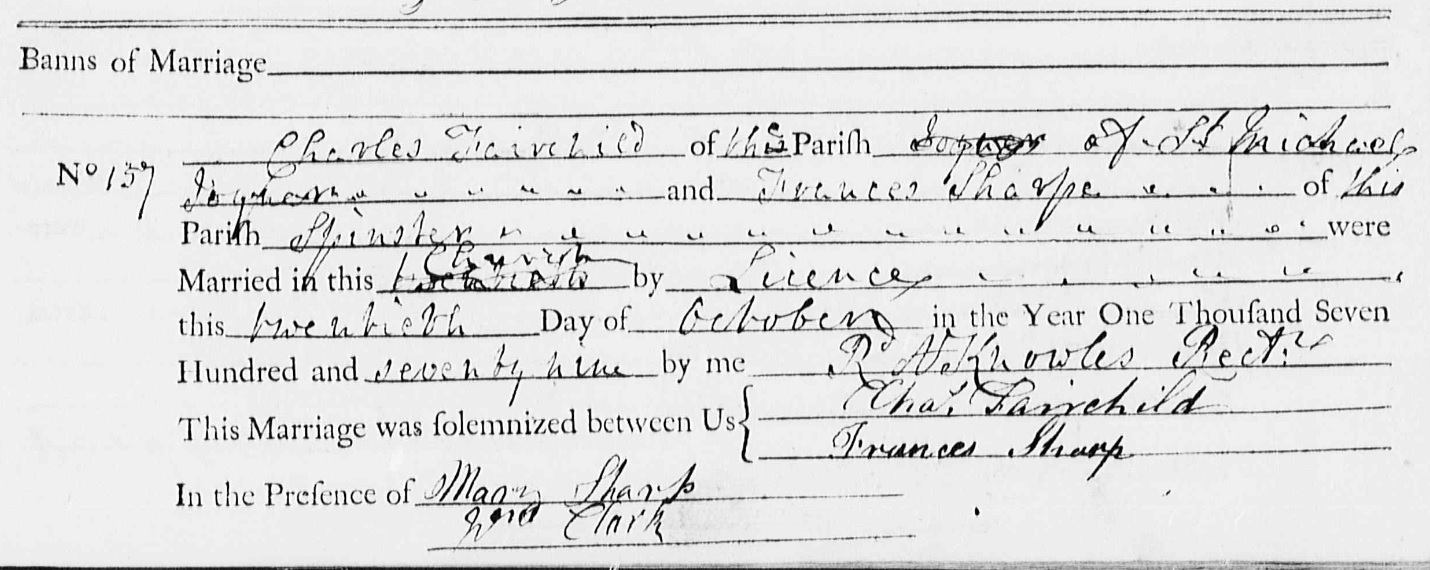 Banns of Marriage
Charles Fairchild of the Parish of St Michael
No 157 Joyner and Frances Sharpe of this
Parish Spinster were
Married in this Church by Licence
this twentieth Day of October in the Year One Thouſand Seven
Hundred and seventy nine by me Rd Knowles Rectr
This Marriage was ſolemnized between Us { Chas. Fairchild
Frances Sharp
In the Preſence of Mary Sharp
Wm Clark